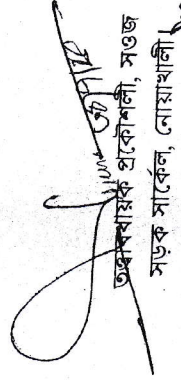 তত্ত্বাবধায়ক প্রকৌশলী, সওজ
সড়ক সার্কেল, নোয়াখালী।